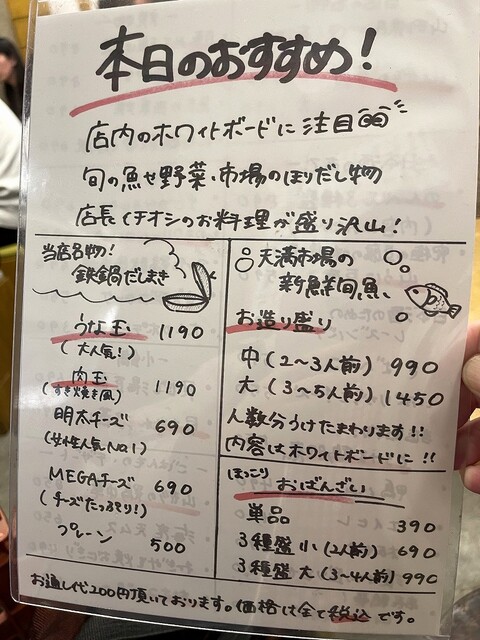 本日のおすすめ!
店内のホワイトボードに注目
旬の魚や野菜、市場のほりだし物
店長イチオシのお料理が盛り沢山!
当店名物!
鉄鍋だしまき
うな玉 1190
(大人気!)
肉玉 1190
(すき焼き風)
明太チーズ 690
(女性人気No.1)
MEGAチーズ 690
(チーズたっぷり!)
プレーン 500
天満市場の
新鮮旬魚
お造り盛り
中(2~3人前) 990
大(3~5人前) 1450
人数分うけたまわります!!
内容はホワイトボードに!!
ほっこり おばんざい
単品 390
3種盛 小(2人前) 690
3種盛 大(3~4人前) 990
お通し代200円頂いております。価格は全て税込です。